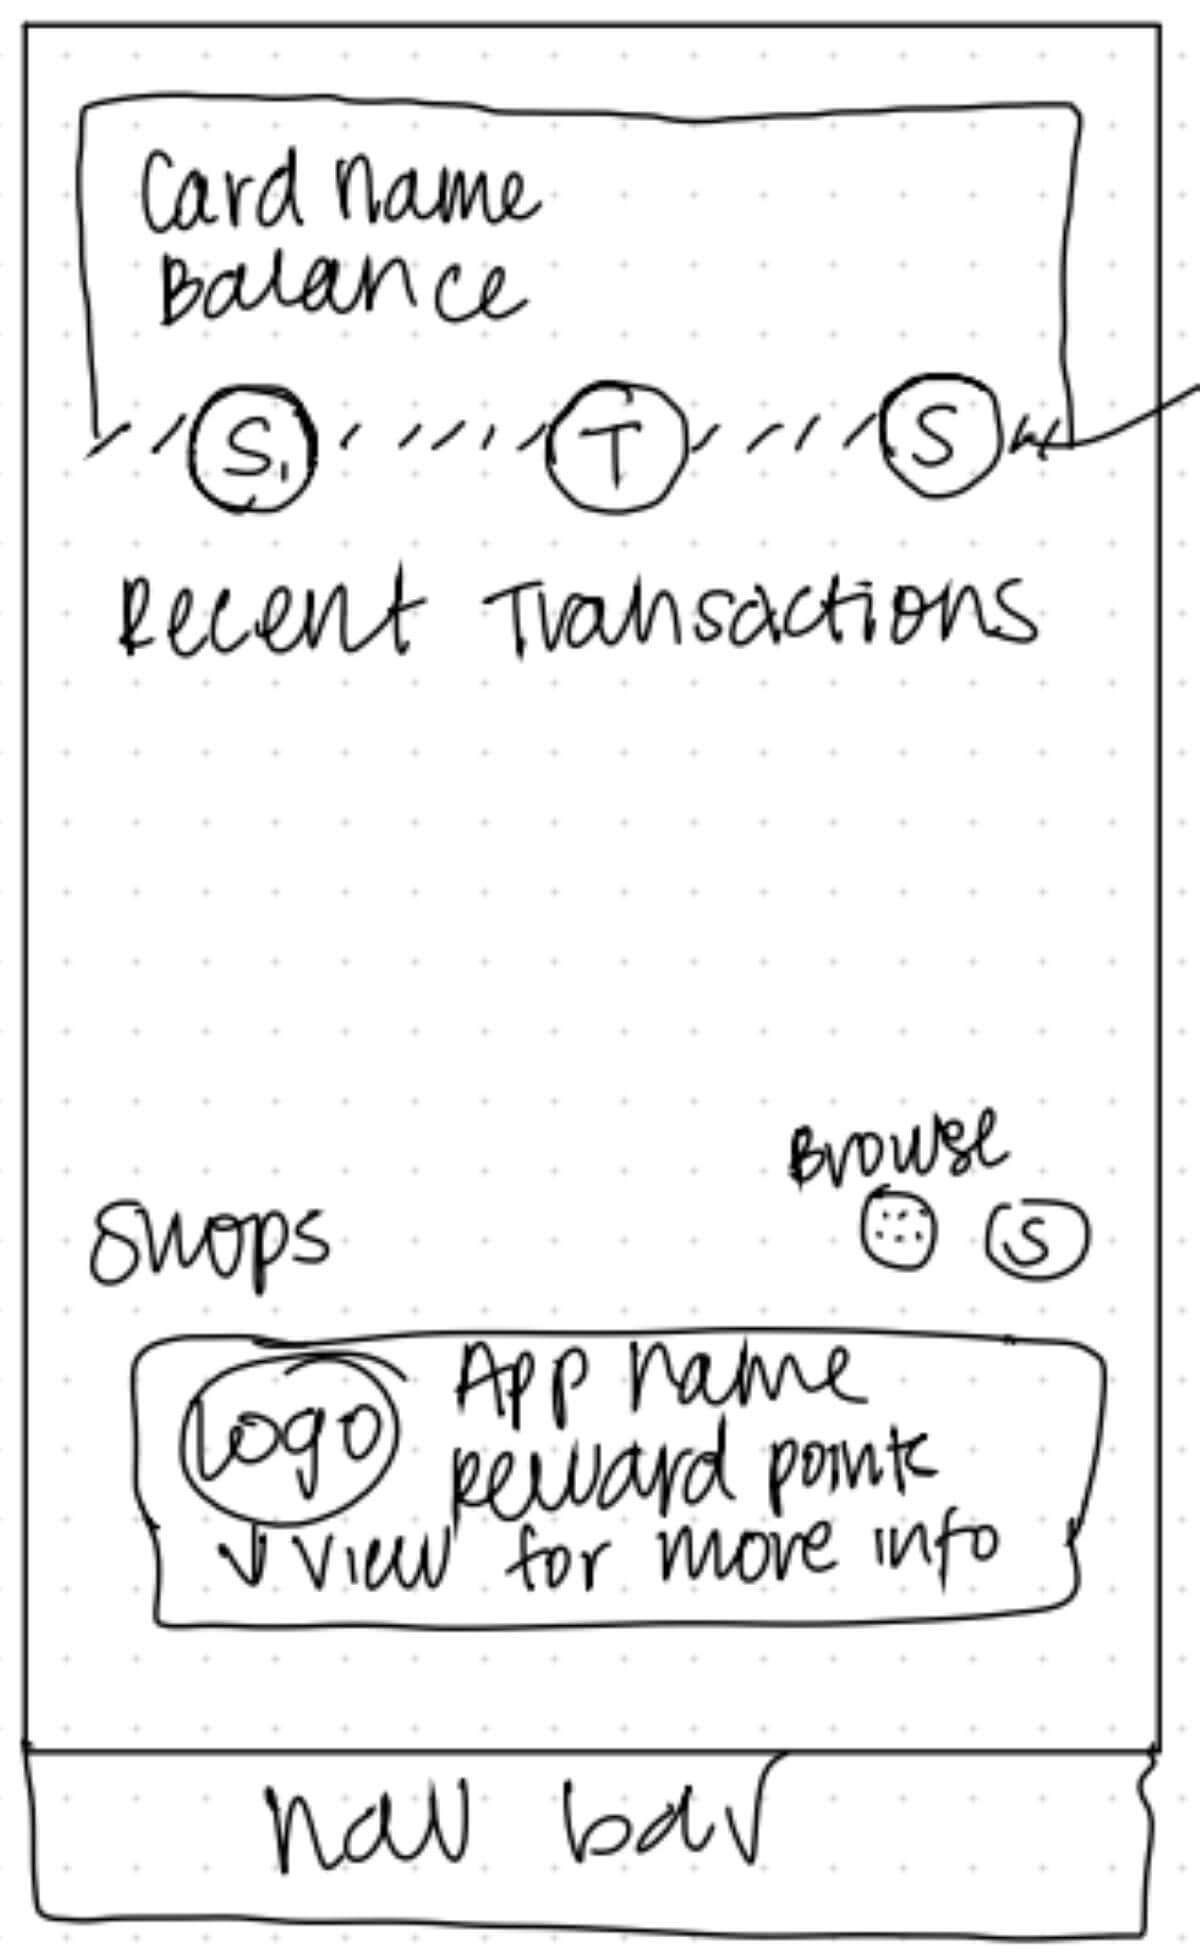 Card name
Balance
S, T S
Recent Transactions
Browse
Shops S
Logo App name
reward points
View for more info
nav bar